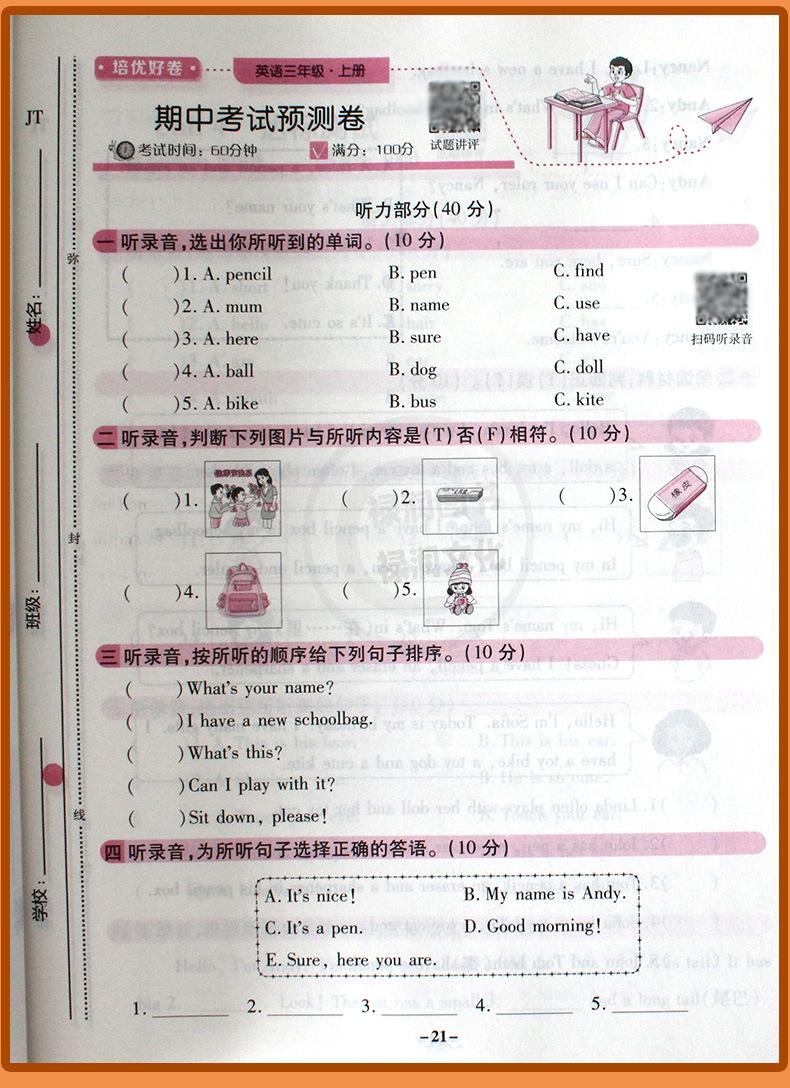 培优好卷
英语三年级·上册
JT
期中考试预测卷
考试时间：60分钟 满分：100分
试题讲评
听力部分(40 分)
一 听录音,选出你所听到的单词。(10 分)
( )1. A. pencil B. pen C. find
( )2. A. mum B. name C. use
( )3. A. here B. sure C. have
( )4. A. ball B. dog C. doll
( )5. A. bike B. bus C. kite
扫码听录音
二 听录音,判断下列图片与所听内容是(T)否(F)相符。(10 分)
( )1. ( )2. ( )3.
橡皮
( )4. ( )5.
三 听录音,按所听的顺序给下列句子排序。(10 分)
( )What's your name?
( )I have a new schoolbag.
( )What's this?
( )Can I play with it?
( )Sit down, please!
四 听录音,为所听句子选择正确的答语。(10 分)
A. It's nice! B. My name is Andy.
C. It's a pen. D. Good morning!
E. Sure, here you are.
1. 2. 3. 4. 5.
-21-
学校:
班级:
姓名:
弥
封
线